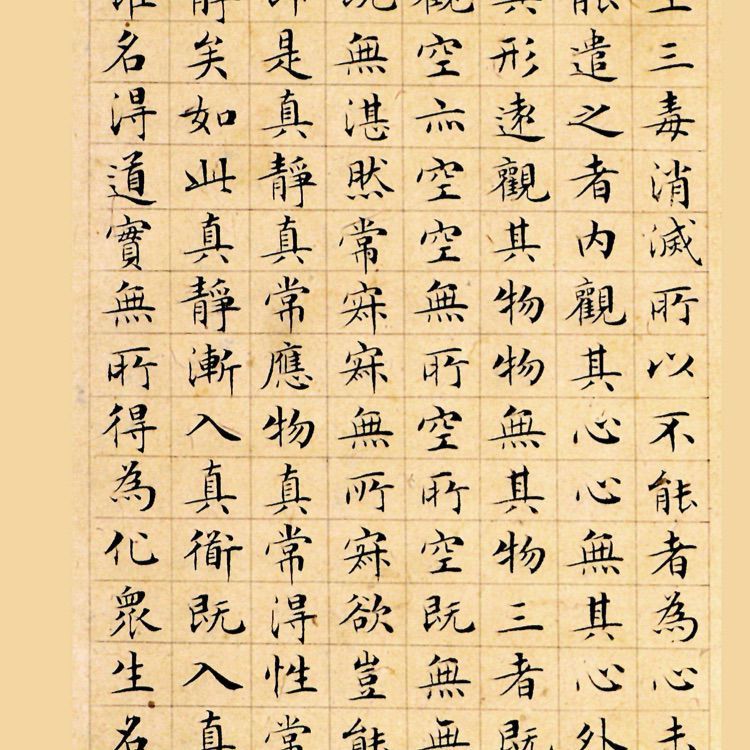 生三毒消滅所以不能者為心未
能遣之者內觀其心心無其心外
其形遠觀其物物無其物三者既
觀空亦空空無所空所空既無無
既無湛然常寂寂無所寂欲豈能
即是真靜真常應物真常得性常
靜矣如此真靜漸入真衟既入真
雖名得道實無所得為化衆生名